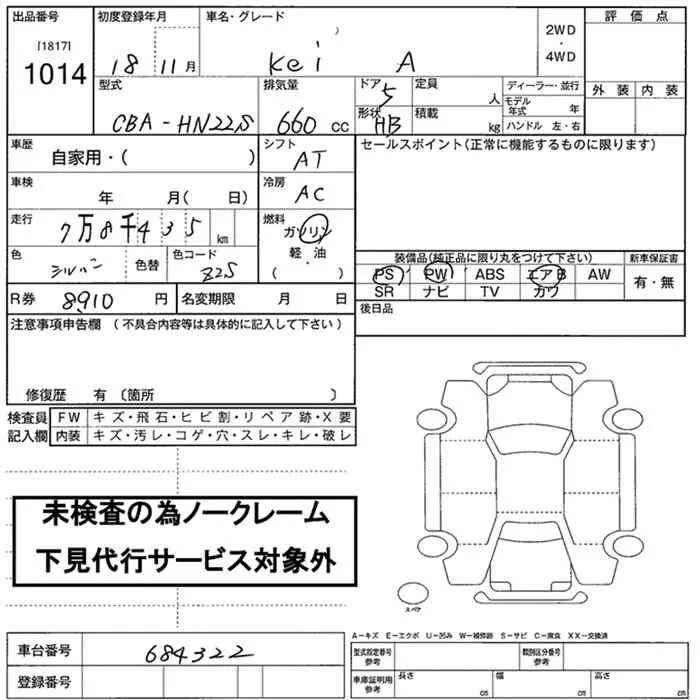 出品番号 初度登録年月 車名・グレード 評価点
[1817]
1014
18 11 月 Kei A 2WD・4WD
型式 排気量 ドア 5 定員 人 ディーラー・並行 外装 内装
モデル年式 年
CBA-HN22S 660 CC 形状 HB 積載 kg ハンドル 左・右
車歴 自家用・( ) シフト AT セールスポイント(正常に機能するものに限ります)
車検 年 月( 日) 冷房 AC
走行 7万8千435 km 燃料 ガソリン
軽・油
( ・ )
色 シルバー 色替 色コード Z2S 装備品(純正品に限り丸をつけて下さい) 新車保証書
PS PW ABS エアB AW 有・無
SR ナビ TV カワ
R券 8910 円 名変期限 月 日 後日品
注意事項申告欄 (不具合内容等は具体的に記入して下さい)
修復歴 有 〔箇所 〕
検査員 FW キズ・飛石・ヒビ割・リペア跡・X要
記入欄 内装 キズ・汚レ・コゲ・穴・スレ・キレ・破レ
未検査の為ノークレーム
下見代行サービス対象外
スペア
A－キズ E－エクボ U－凹み W－補修跡 S－サビ C－腐食 XX－交換済
車台番号 684322 型式指定番号 参考 類別区分番号 参考
登録番号 車庫証明用 参考 長さ cm 幅 cm 高さ cm